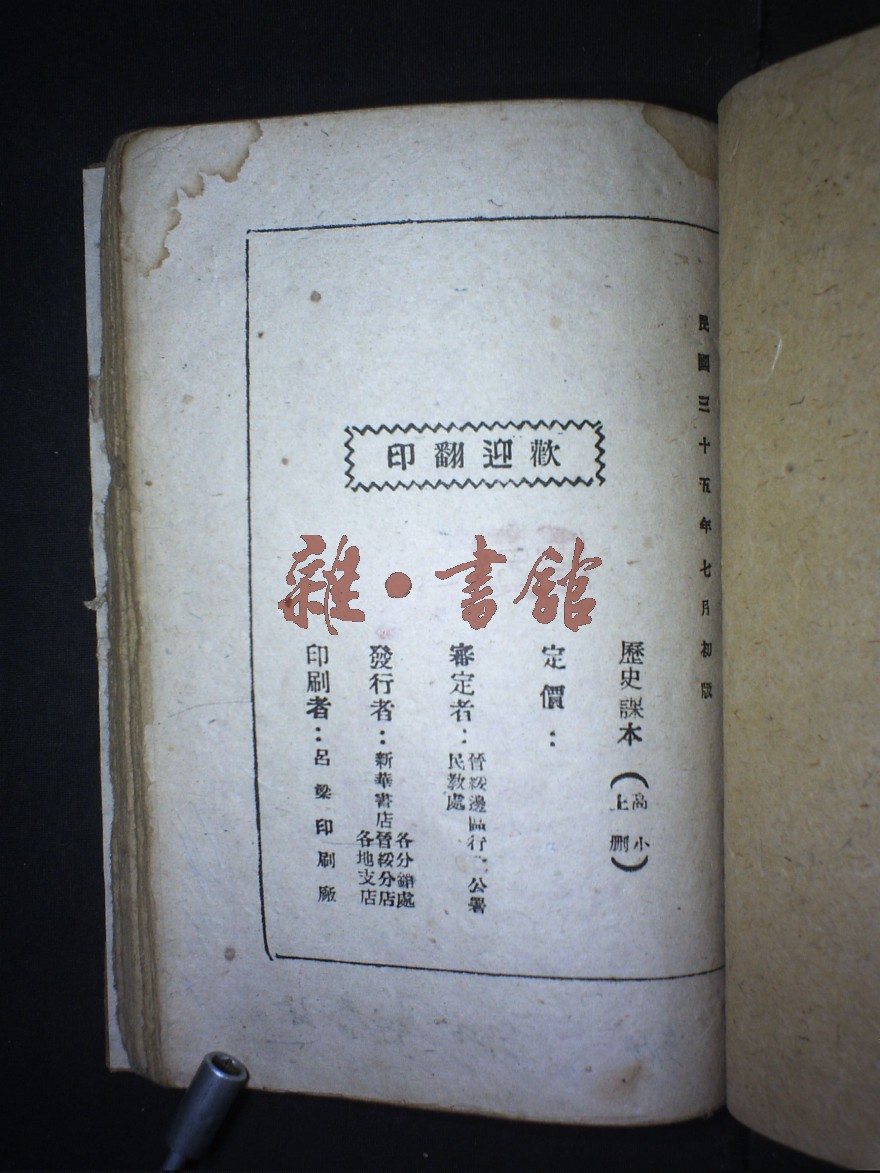 民國三十五年七月初版
歡迎翻印
雜·書館
歷史課本（高小上删）
定價：
審定者：晉綏邊區行 公署
民教處
發行者：新華書店晉綏分店
各分銷處
各地支店
印刷者：呂梁印刷廠